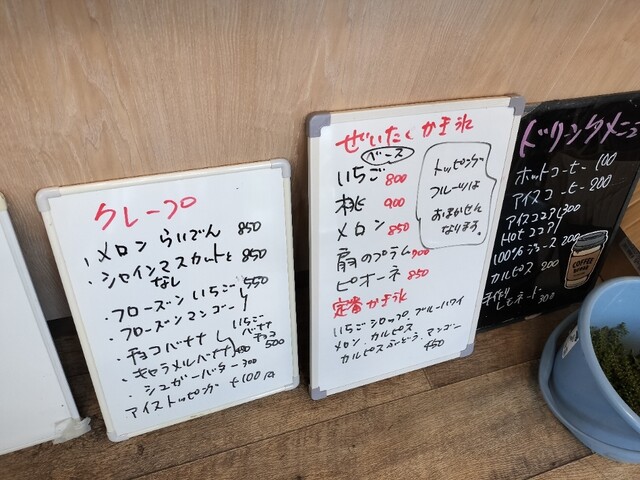 クレープ
・メロン らいでん 850
・シャインマスカットと 850
なし
・フローズンいちご 550
・フローズンマンゴー
・チョコバナナ
いちご
バナナ
チョコ
500
・キャラメルバナナ 450
・シュガーバター 300
アイストッピング +100円
ぜいたくかき氷
ベース
いちご 800
桃 900
メロン 850
扇のプラム 700
ピオーネ 850
トッピング
フルーツは
おまかせに
なります。
定番かき氷
いちごシロップ、ブルーハワイ
メロン、カルピス
カルピスぶどう、マンゴー
450
ドリンクメニュー
ホットコーヒー 100
アイスコーヒー 200
アイスココア 300
HOTココア
100%ジュース 200
カルピス 200
手作り
レモネード 300
COFFEE